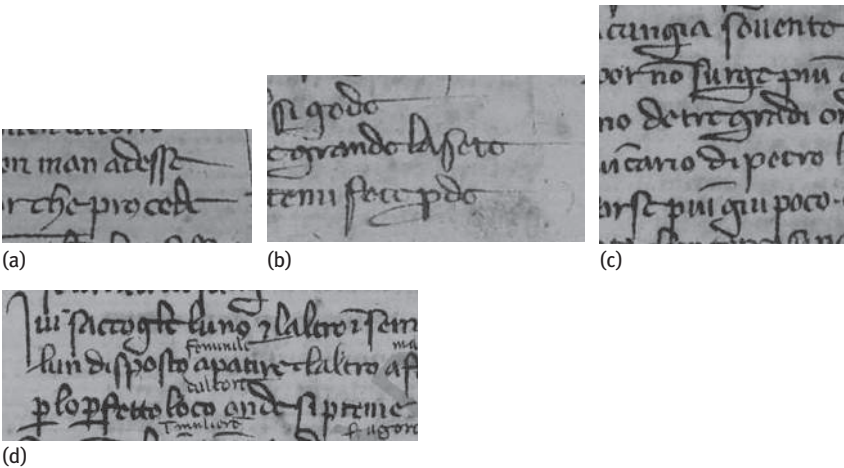 on man adesse
rche procede
(a)
si gode
e grande la sete
temi fece pde
(b)
cingia sovente
por nō surge piu
no de tre gradi
vicario di petro
arse piu giu poco
(c)
Ivi saccogle luno ⁊ laltro ī
femunile
lun disposto a patire e laltro a f
dal core
p lo pfetto loco onde si preme
(d)